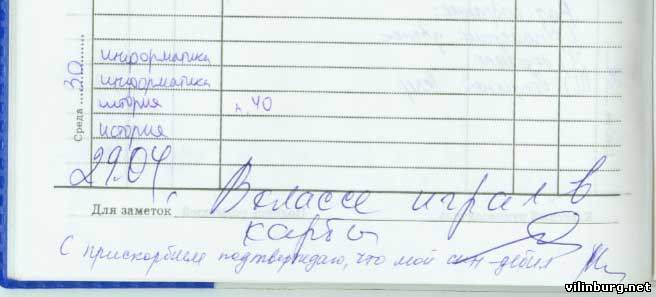 Среда 30
информатика
информатика
история п.40
история
29.04 В классе играл в
Для заметок
карты
С прискорбием подтверждаю, что мой сын-дебил
vilinburg.net